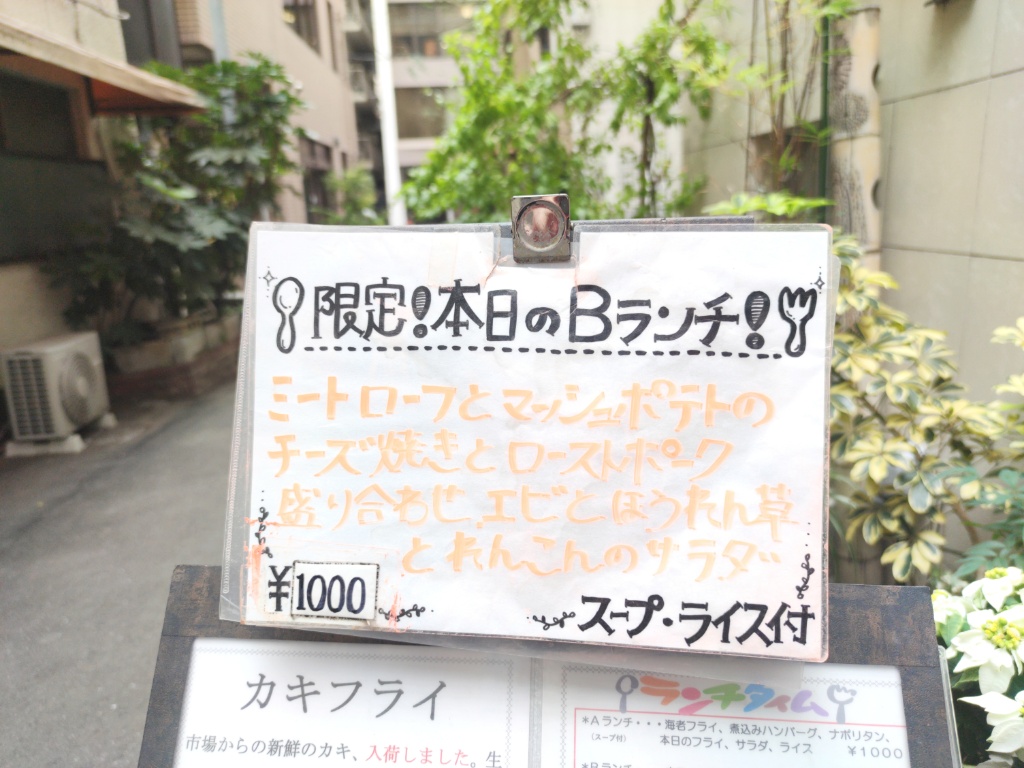 限定!本日のBランチ!
ミートローフとマッシュポテトの
チーズ焼きとローストポーク
盛り合わせ、エビとほうれん草
とれんこんのサラダ
¥1000
スープ・ライス付
カキフライ
市場からの新鮮のカキ、入荷しました。生
ランチタイム
*Aランチ・・・海老フライ、煮込みハンバーグ、ナポリタン、
(スープ付) 本日のフライ、サラダ、ライス ¥1000